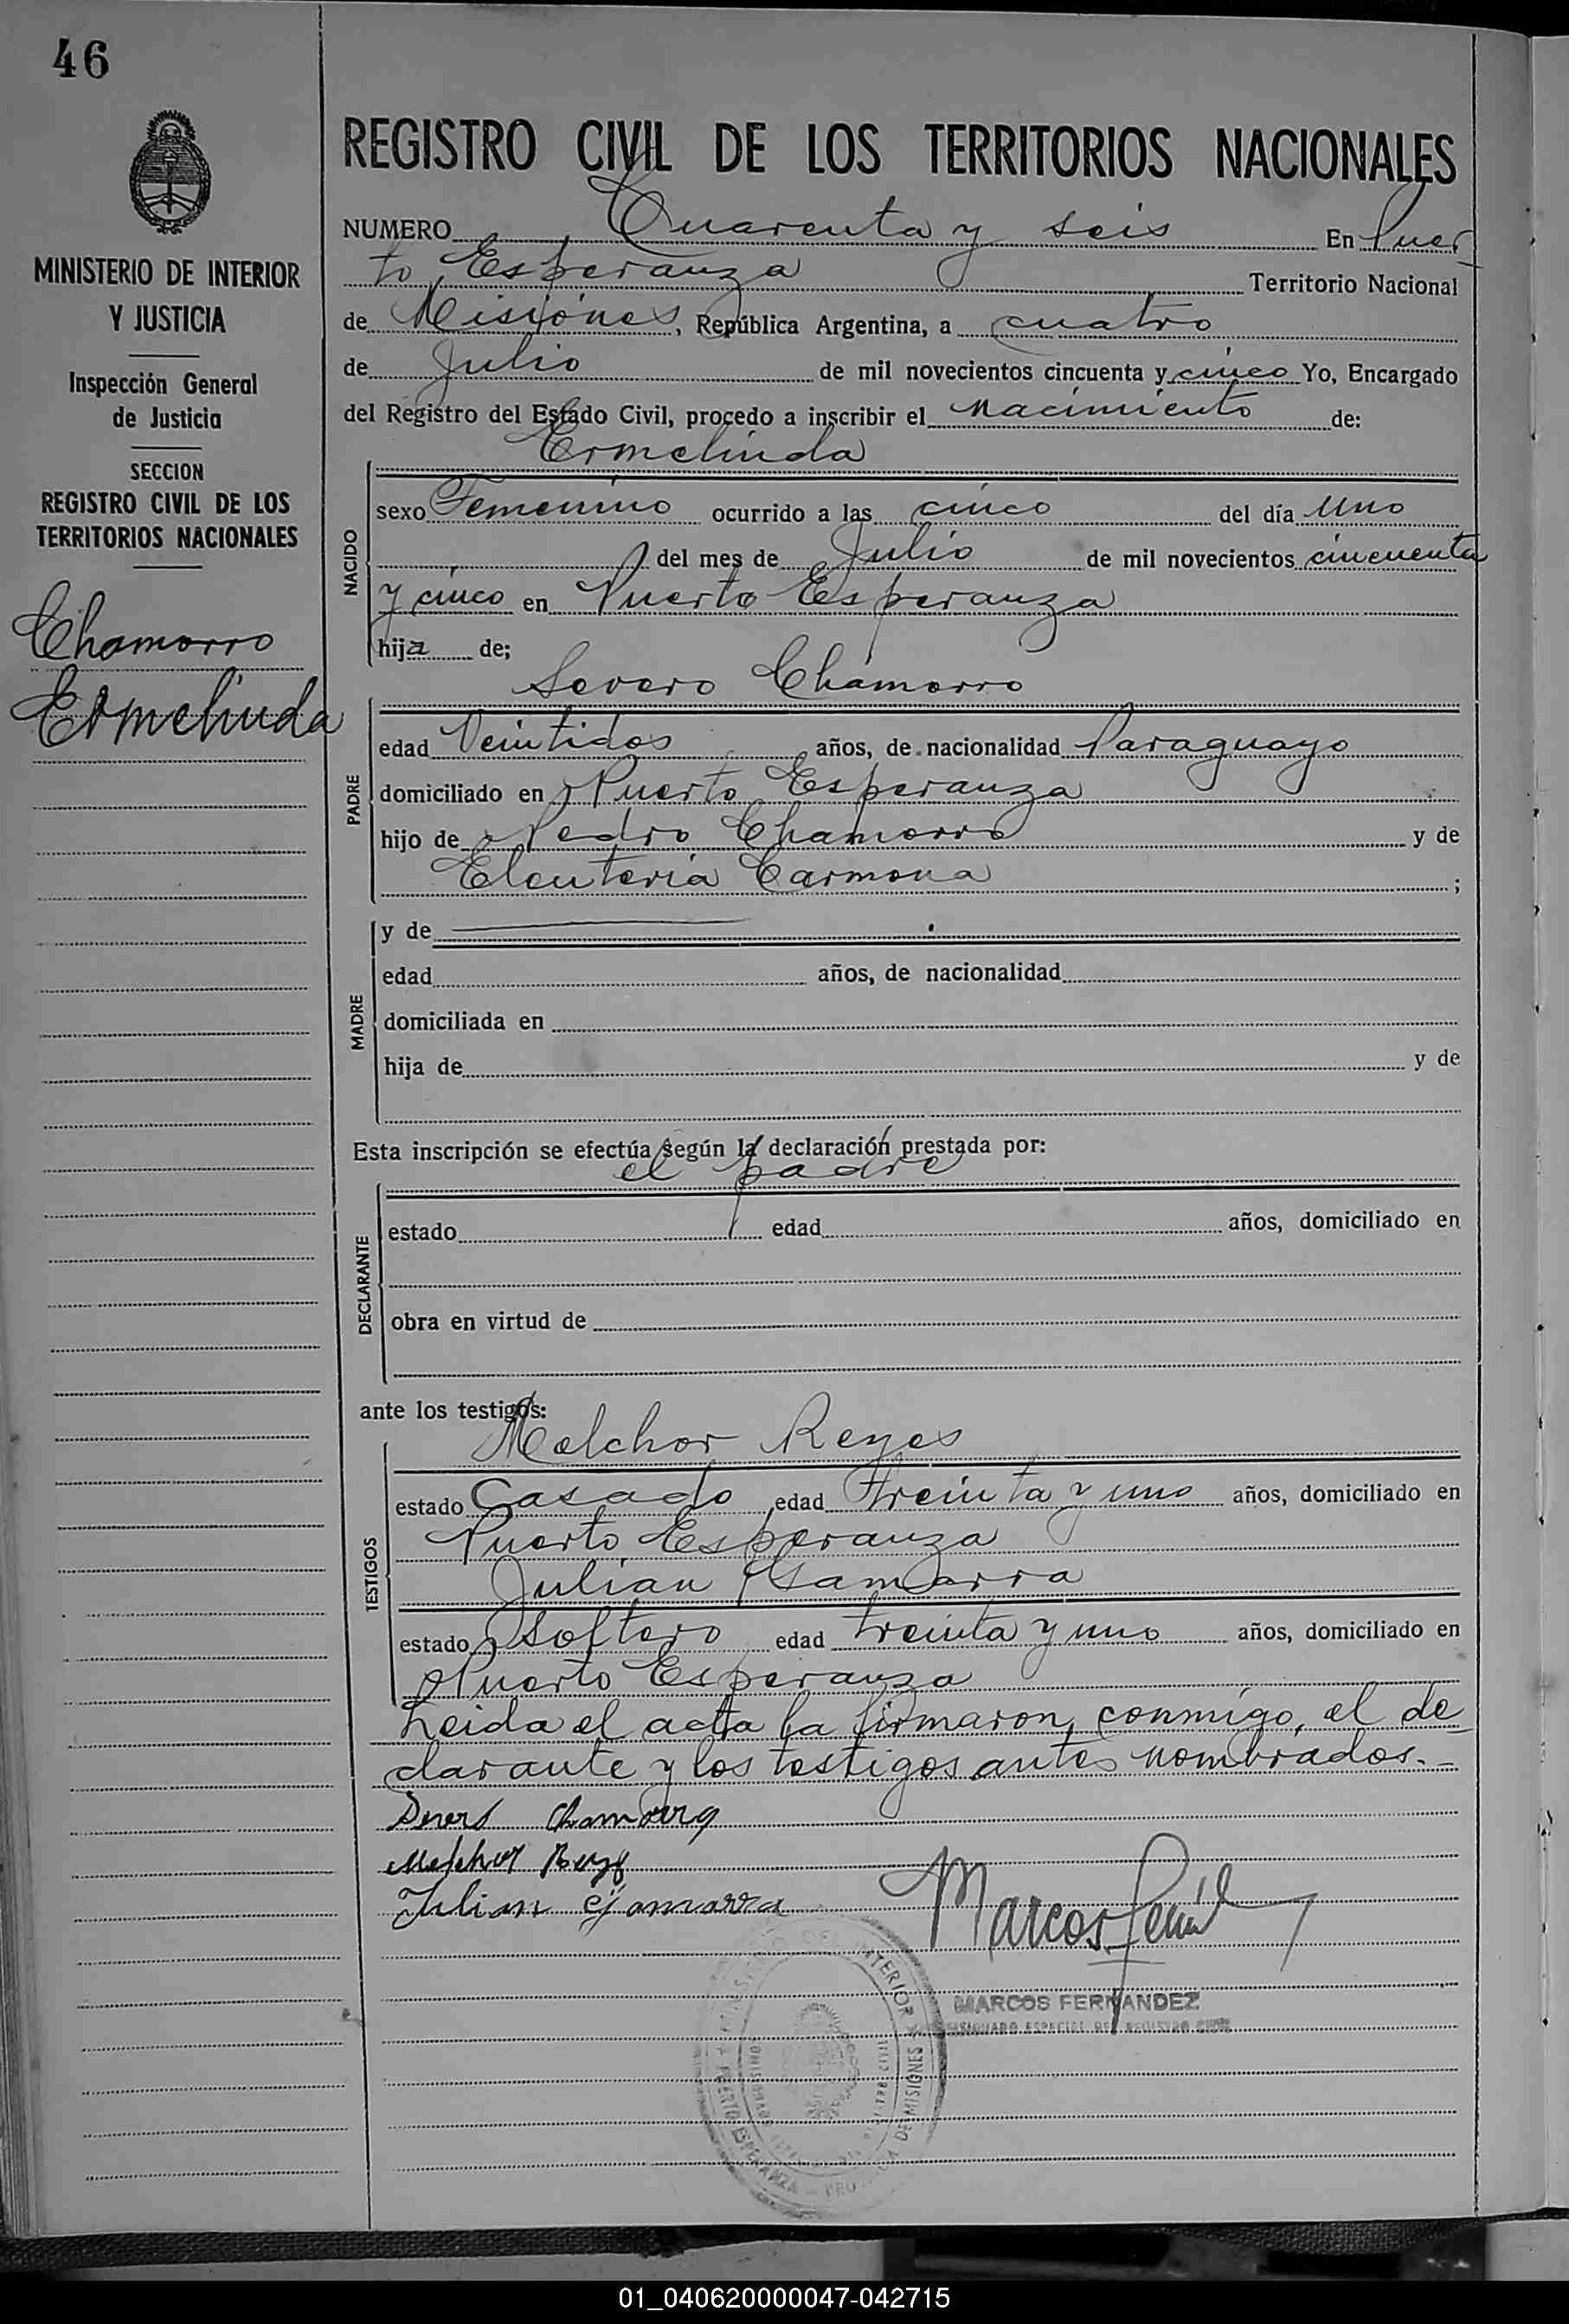 46
MINISTERIO DE INTERIOR
Y JUSTICIA
Inspección General
de Justicia
SECCION
REGISTRO CIVIL DE LOS
TERRITORIOS NACIONALES
Chamorro
Ermelinda
REGISTRO CIVIL DE LOS TERRITORIOS NACIONALES
NUMERO Cuarenta y seis En Puer
to Esperanza Territorio Nacional
de Misiónes, República Argentina, a cuatro
de Julio de mil novecientos cincuenta y cinco Yo, Encargado
del Registro del Estado Civil, procedo a inscribir el nacimiento de:
Ermelinda
NACIDO
sexo Femenino ocurrido a las cinco del día uno
del mes de Julio de mil novecientos cincuenta
y cinco en Puerto Esperanza
hija de;
Severo Chamorro
PADRE
edad Veintidos años, de nacionalidad Paraguayo
domiciliado en Puerto Esperanza
hijo de Pedro Chamorro y de
Eleuteria Carmona ;
MADRE
y de
edad años, de nacionalidad
domiciliada en
hija de y de
Esta inscripción se efectúa según la declaración prestada por:
el padre
DECLARANTE
estado edad años, domiciliado en
obra en virtud de
ante los testigos:
Melchor Reyes
TESTIGOS
estado Casado edad treinta y uno años, domiciliado en
Puerto Esperanza
Julian Gamarra
estado Soltero edad treinta y uno años, domiciliado en
Puerto Esperanza
Leida el acta la firmaron, conmigo, el de
clarante y los testigos antes nombrados.-
Chamorro
Melchor Reyes
Julian Gamarra
Marcos
MARCOS FERNANDEZ
ESPECIAL DEL REGISTRO CIVIL
DEL INTERIOR
DE MISIONES
01_040620000047-042715